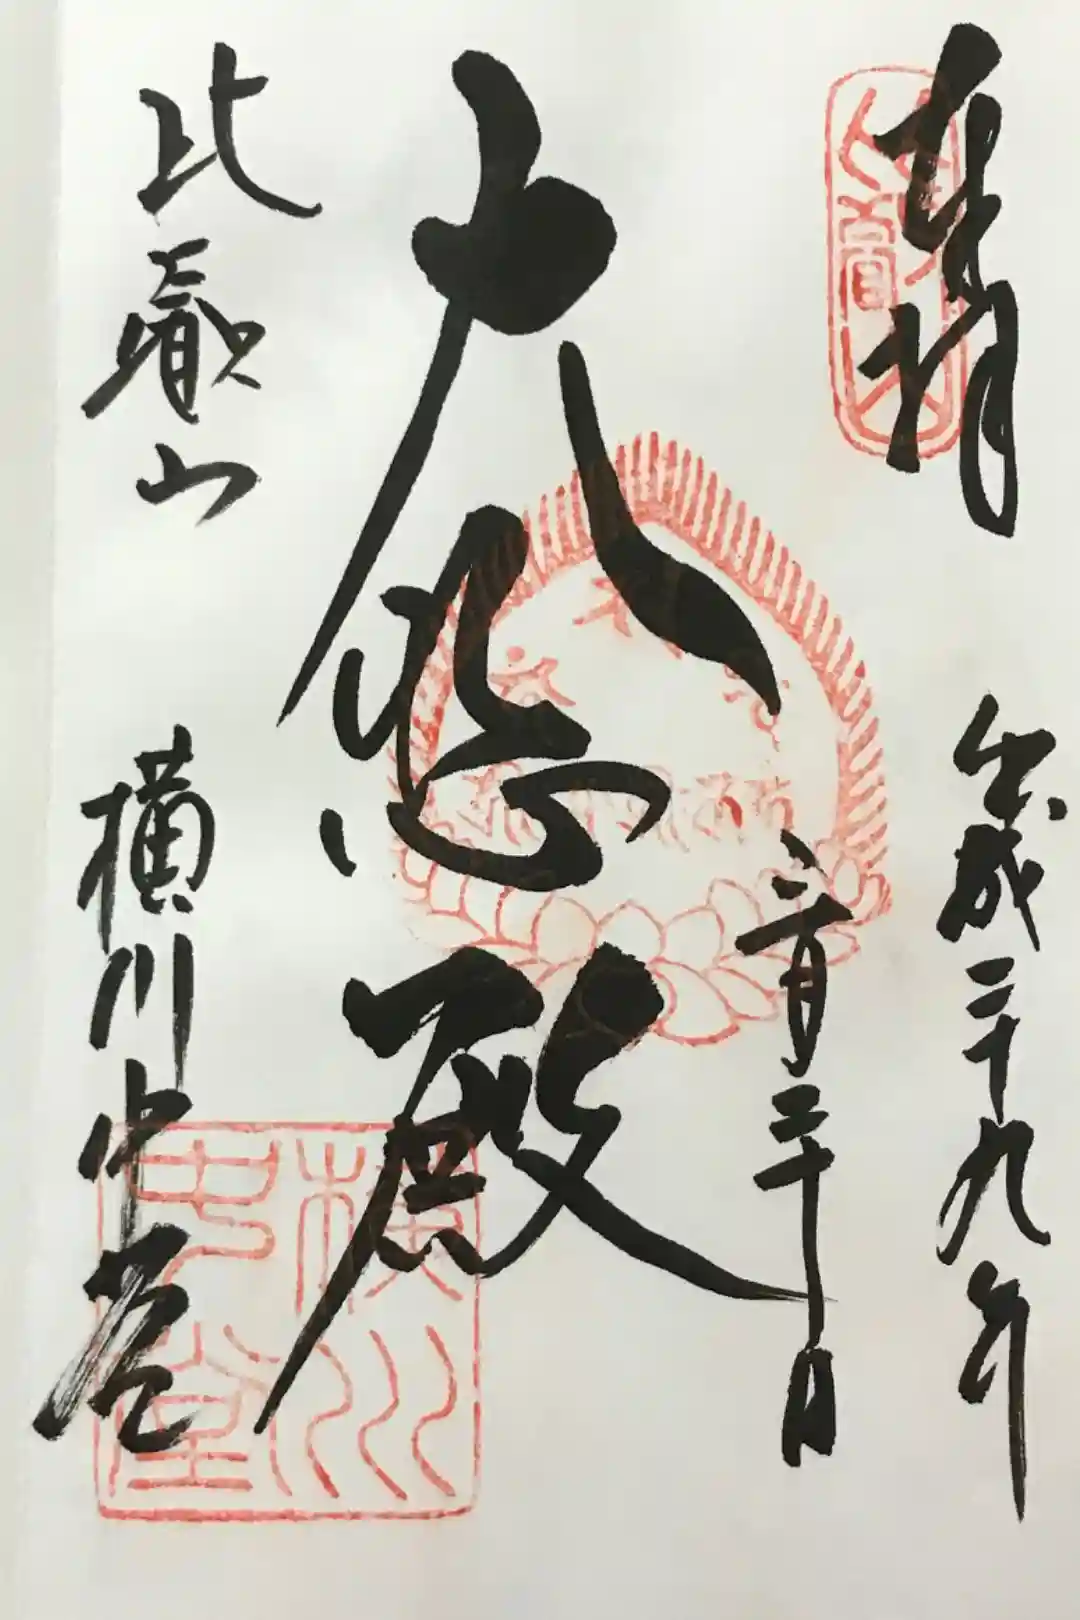 奉拝
平成二十九年
月二十日
大悲殿
比叡山
横川中堂
横川
中堂